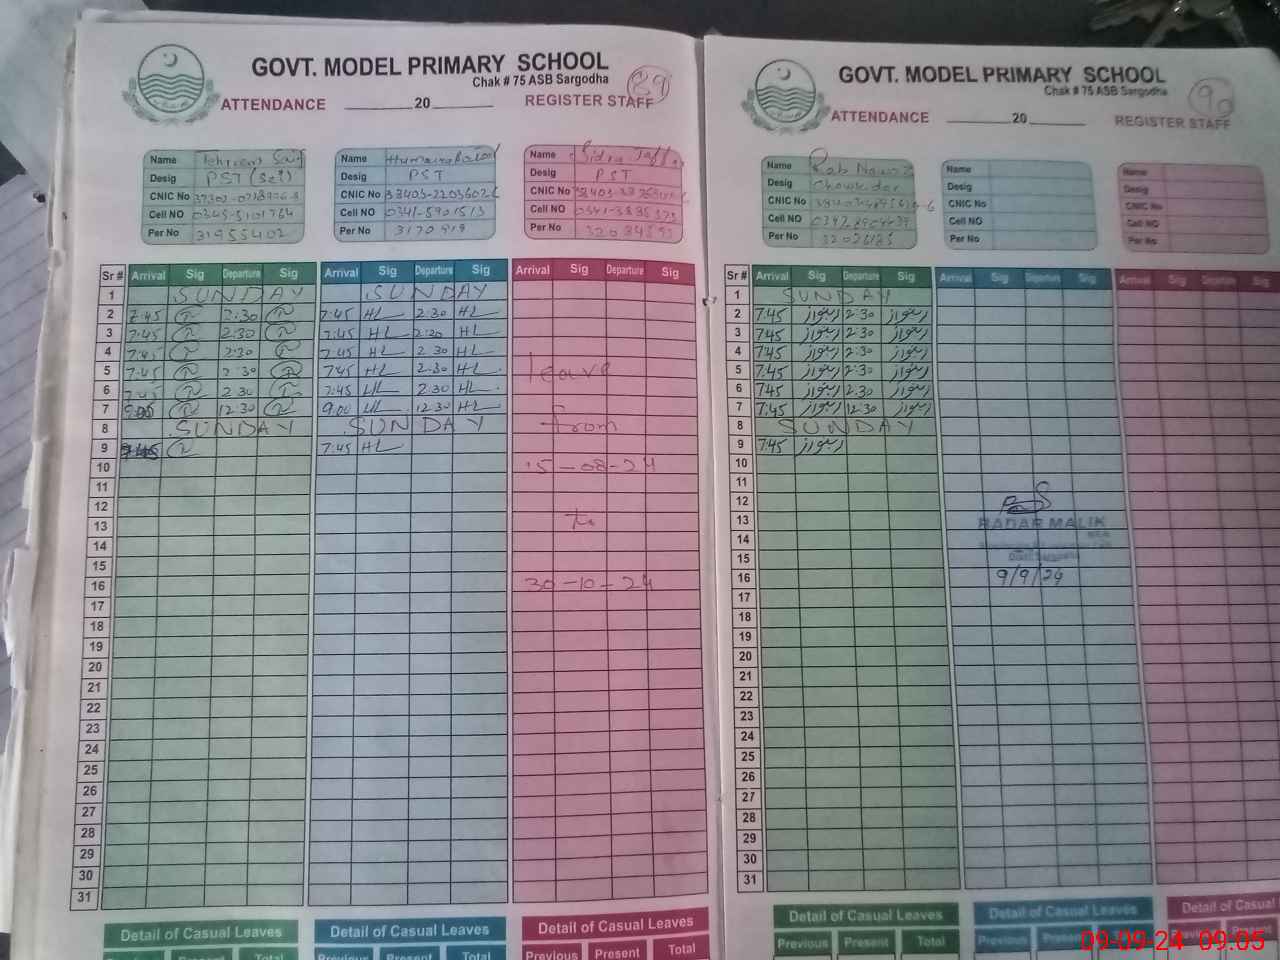 GOVT. MODEL PRIMARY SCHOOL
Chak # 75 ASB Sargodha
89
ATTENDANCE ________20________ REGISTER STAFF
Name
Desig PST (Sci)
CNIC No
Cell NO 0345-5101764
Per No 31955402
Name Humaira Batool
Desig PST
CNIC No
Cell NO 0341-5901513
Per No 3170919
Name Sidra
Desig PST
CNIC No
Cell NO
Per No
Sr # Arrival Sig Departure Sig Arrival Sig Departure Sig Arrival Sig Departure Sig
1 SUNDAY SUNDAY
2 7.45 2.30 7.45 HL 2.30 HL
3 7.45 2.30 7.45 HL 2.30 HL
4 7.45 2.30 7.45 HL 2.30 HL
5 7.45 2.30 7.45 HL 2.30 HL leave
6 7.45 2.30 7.45 HL 2.30 HL
7 9.00 12.30 9.00 HL 12.30 HL
8 SUNDAY SUNDAY from
9 7.45 7.45 HL
10 15-08-24
11
12
13 to
14
15
16 30-10-24
17
18
19
20
21
22
23
24
25
26
27
28
29
30
31
Detail of Casual Leaves Detail of Casual Leaves Detail of Casual Leaves
Previous Present Total Previous Present Total Previous Present Total
GOVT. MODEL PRIMARY SCHOOL
Chak # 75 ASB Sargodha
90
ATTENDANCE ________20________ REGISTER STAFF
Name Rab Nawaz
Desig Chowkidar
CNIC No
Cell NO
Per No
Name
Desig
CNIC No
Cell NO
Per No
Name
Desig
CNIC No
Cell NO
Per No
Sr # Arrival Sig Departure Sig Arrival Sig Departure Sig Arrival Sig Departure Sig
1 SUNDAY
2 7.45 ربنواز 2.30 ربنواز
3 7.45 ربنواز 2.30 ربنواز
4 7.45 ربنواز 2.30 ربنواز
5 7.45 ربنواز 2.30 ربنواز
6 7.45 ربنواز 2.30 ربنواز
7 7.45 ربنواز 12.30 ربنواز
8 SUNDAY
9 7.45 ربنواز
10
11
12
13 MALIK
14
15
16 9/9/24
17
18
19
20
21
22
23
24
25
26
27
28
29
30
31
Detail of Casual Leaves Detail of Casual Leaves Detail of Casual
Previous Present Total Previous
09-09-24 09:05